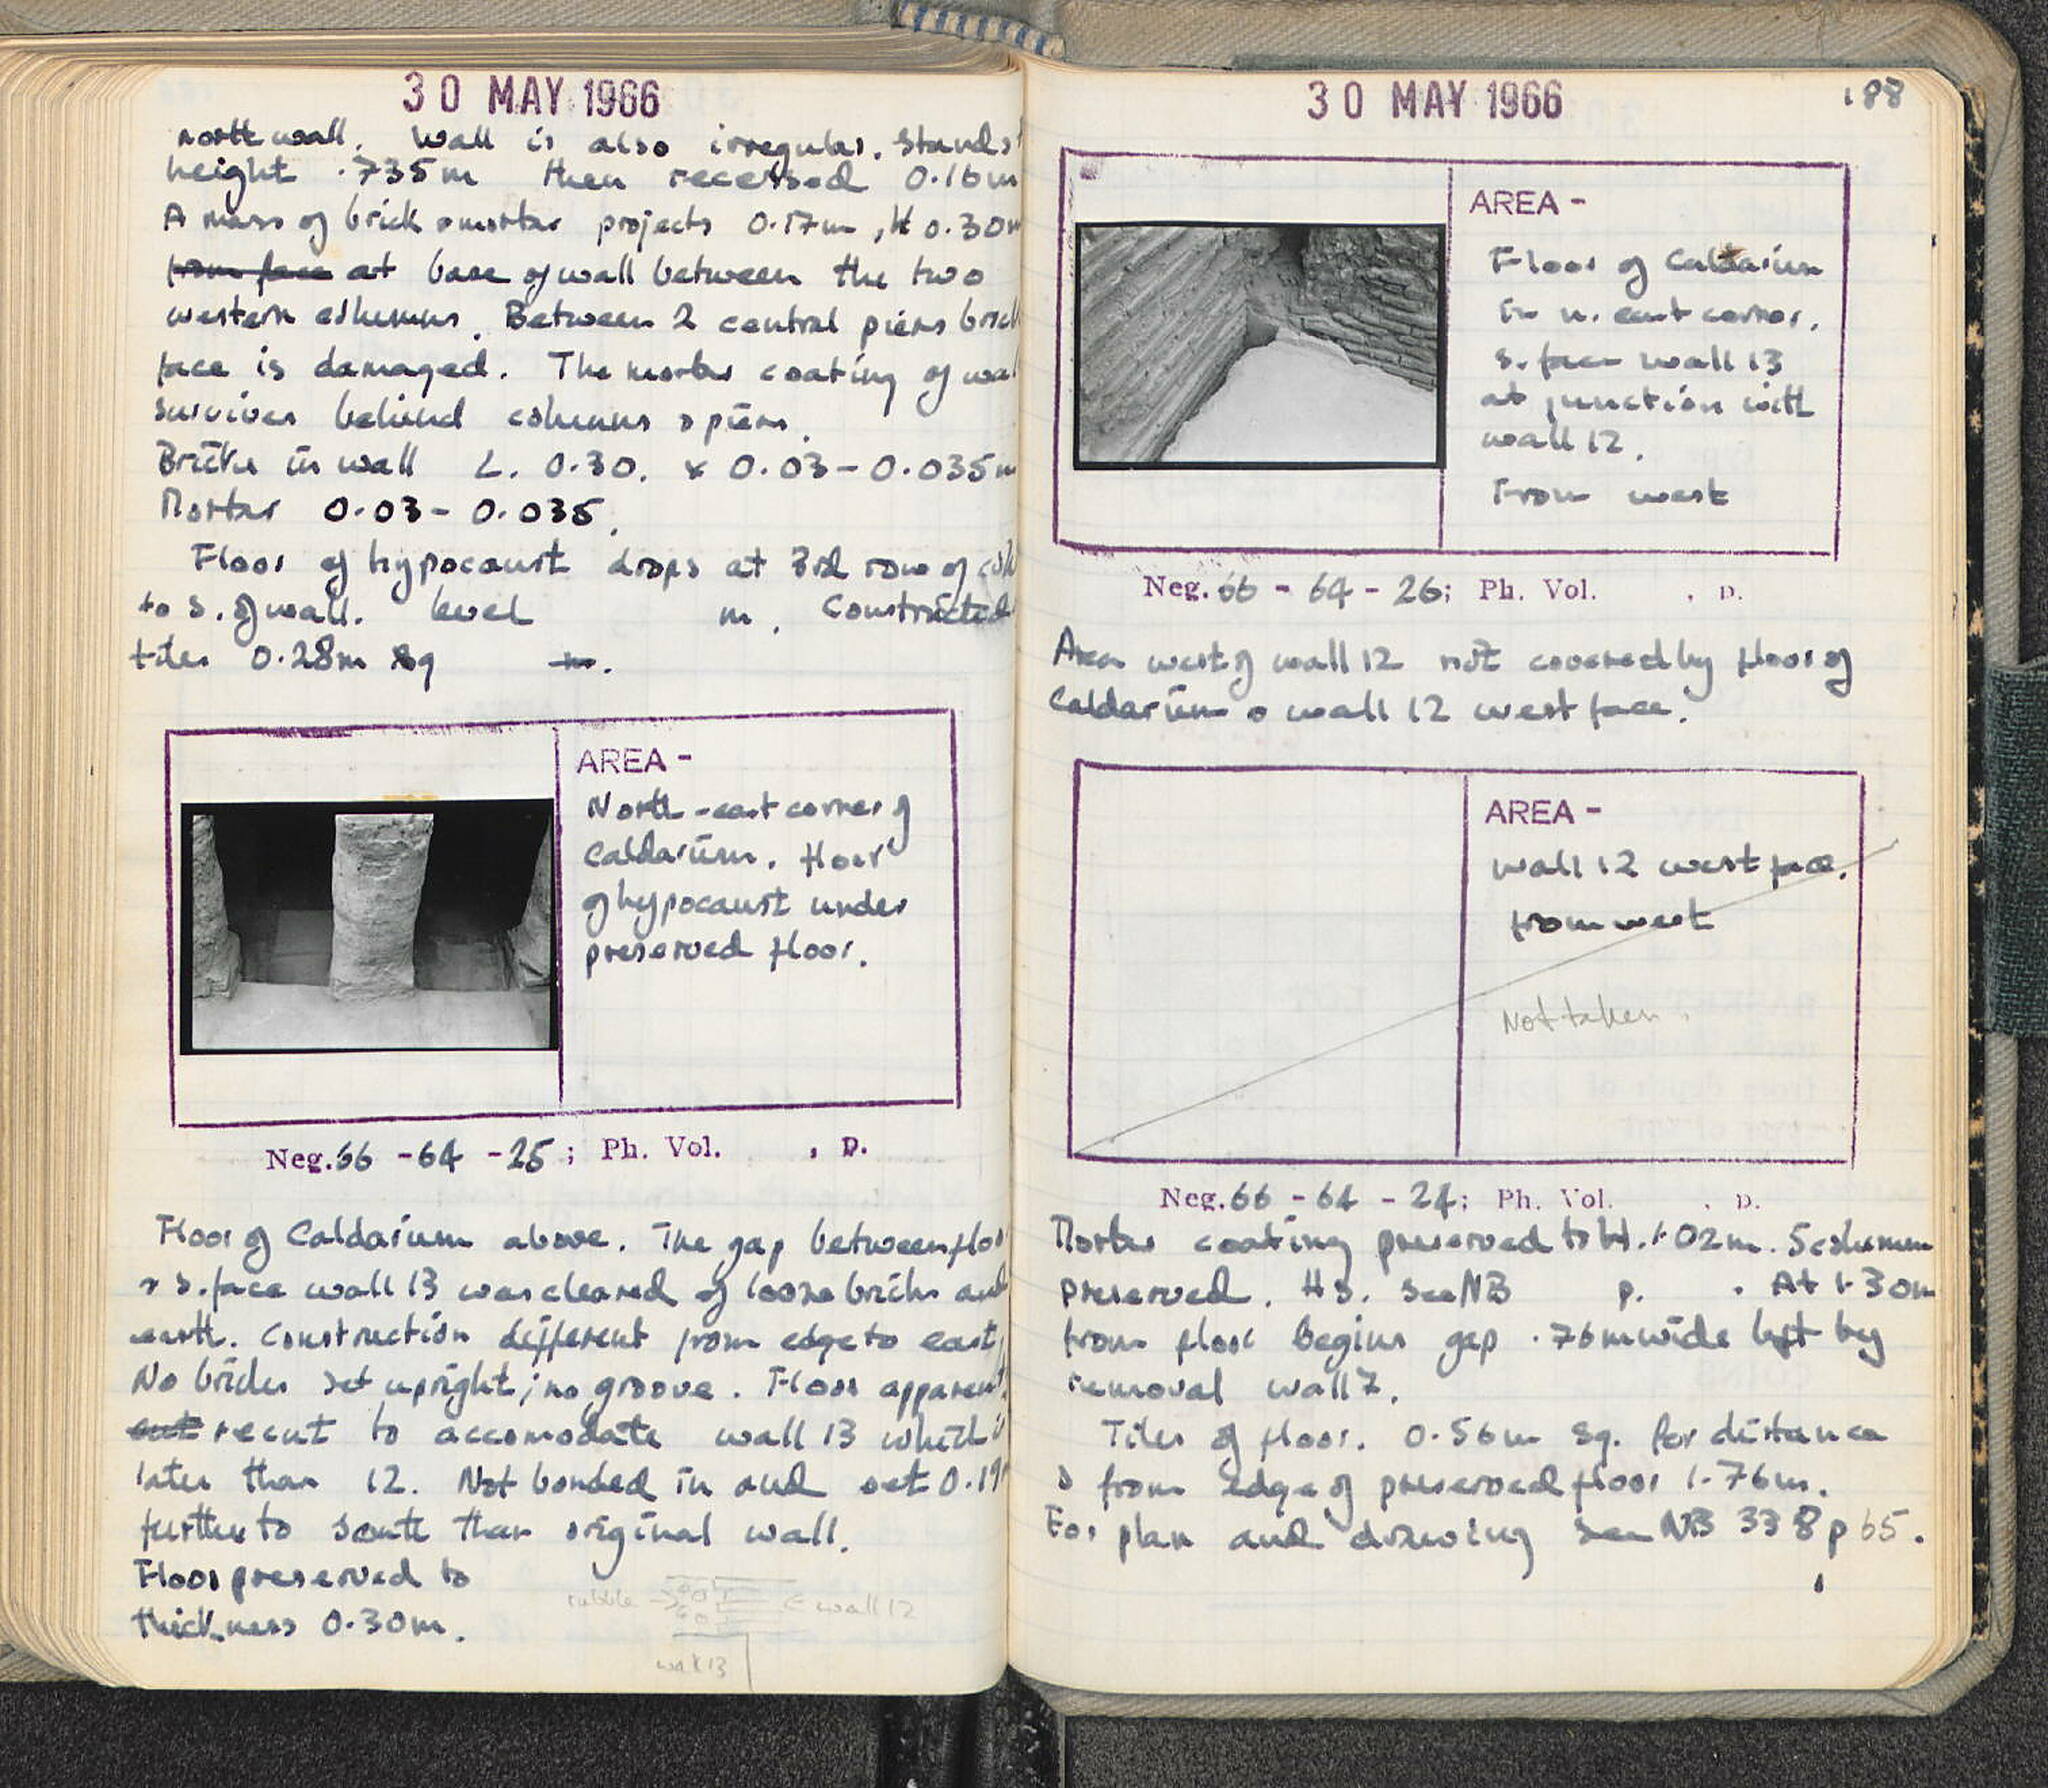 30 MAY 1966
north wall. Wall is also irregular. Stands
height .735m then recessed 0.16m
A mass of brick & mortar projects 0.17m, H 0.30m
from face at base of wall between the two
western columns. Between 2 central piers brick
face is damaged. The mortar coating of wal
survives behind columns & piers.
Bricks in wall L. 0.30. x 0.03-0.035m
Mortar 0.03-0.035.
Floor of hypocaust drops at 3rd row of col
to S. of wall. level m. Constructed
tiles 0.28m sq m.
AREA -
North-east corner of
Caldarium. floor
of hypocaust under
preserved floor.
Neg. 66 - 64 - 25; Ph. Vol. , p.
Floor of Caldarium above. The gap between floo
& S. face wall 13 was cleared of loose bricks and
earth. Construction different from edge to east,
No bricks set upright; no groove. Floor apparent
cut recut to accomodate wall 13 which is
later than 12. Not bonded in and set 0.19
further to south than original wall.
Floor preserved to
thickness 0.30m.
rubble wall 12
wall 13
30 MAY 1966
188
AREA -
Floor of Caldarium
in n. east corner.
S. face wall 13
at junction with
wall 12.
From west
Neg. 66 - 64 - 26; Ph. Vol. , p.
Area west of wall 12 not covered by floor of
Caldarium & wall 12 west face.
AREA -
Wall 12 west face.
from west
Not taken.
Neg. 66 - 64 - 24; Ph. Vol. , p.
Mortar coating preserved to Ht. 1.02m. 5 columns
preserved. Hs. see NB p. . At 1.30m
from floor begins gap .76m wide left by
removal wall 7.
Tiles of floor. 0.56m sq. for distance
S from edge of preserved floor 1.76m.
For plan and drawing see NB 338 p 65.